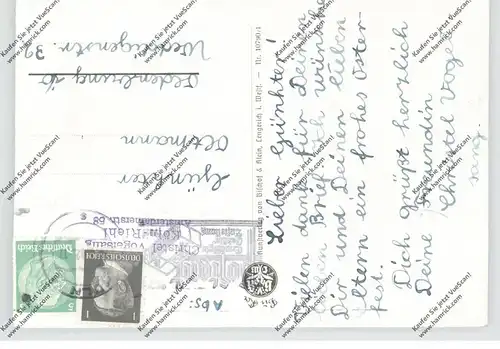 Lieber Günther!
Vielen Dank für Deinen
lieben Brief. Ich wünsche
Dir und Deinen lieben
Eltern ein frohes Oster-
fest.
Dich grüßt herzlich
Deine Freundin
Christel Vogel-
sang.
Günther
Oltmann
Weddigenstr. 39
Kunstverlag von Bischof & Klein, Lengerich i. Westf. — Nr. 10790/1
Abs:
Christel Vogelsang
Köln-Riehl
Amsterdamerstr. 68
Deutsches Reich
5
DEUTSCHES REICH
1
Kaufen Sie jetzt VueScan!
www.hamrick.com